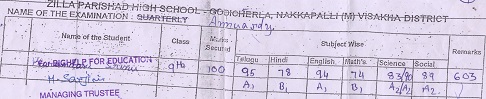 ZILLA PARISHAD HIGH SCHOOL - GODICHERLA, NAKKAPALLI (M) VISAKHA DISTRICT
NAME OF THE EXAMINATION : QUARTERLY Annually
Name of the Student Class Marks Secured Subject Wise Remarks
Telugu Hindi English Math's Science Social
FOR BIGHELP FOR EDUCATION 9th 700 95 78 94 74 83/90 89 603
A1 B1 A1 B1 A2/A1 A2
MANAGING TRUSTEE